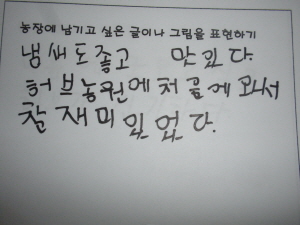 농장에 남기고 싶은 글이나 그림을 표현하기
냄새도좋고 맛있다.
허브농원에처음에와서
찰재미있었다.